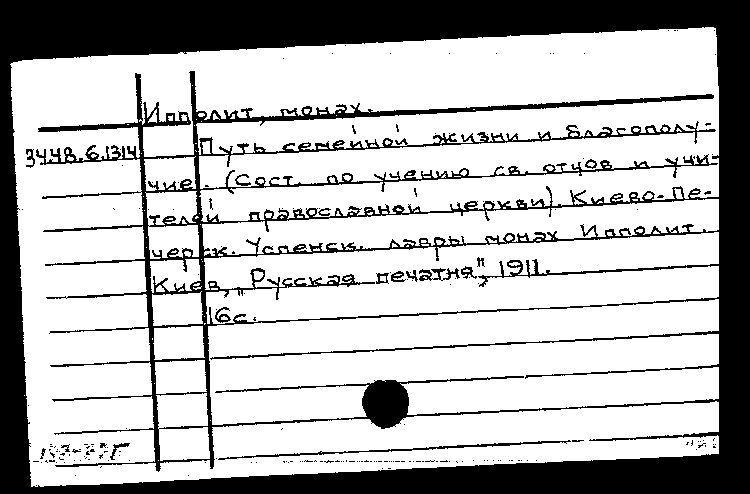 Ипполит, монах.
34.48.6.1314 Путь семейной жизни и благополу-
чие. (Сост. по учению св. отцов и учи-
телей православной церкви). Киево-Пе-
черск. Успенск. лавры монах Ипполит.
Киев, "Русская печатня", 1911.
16с.